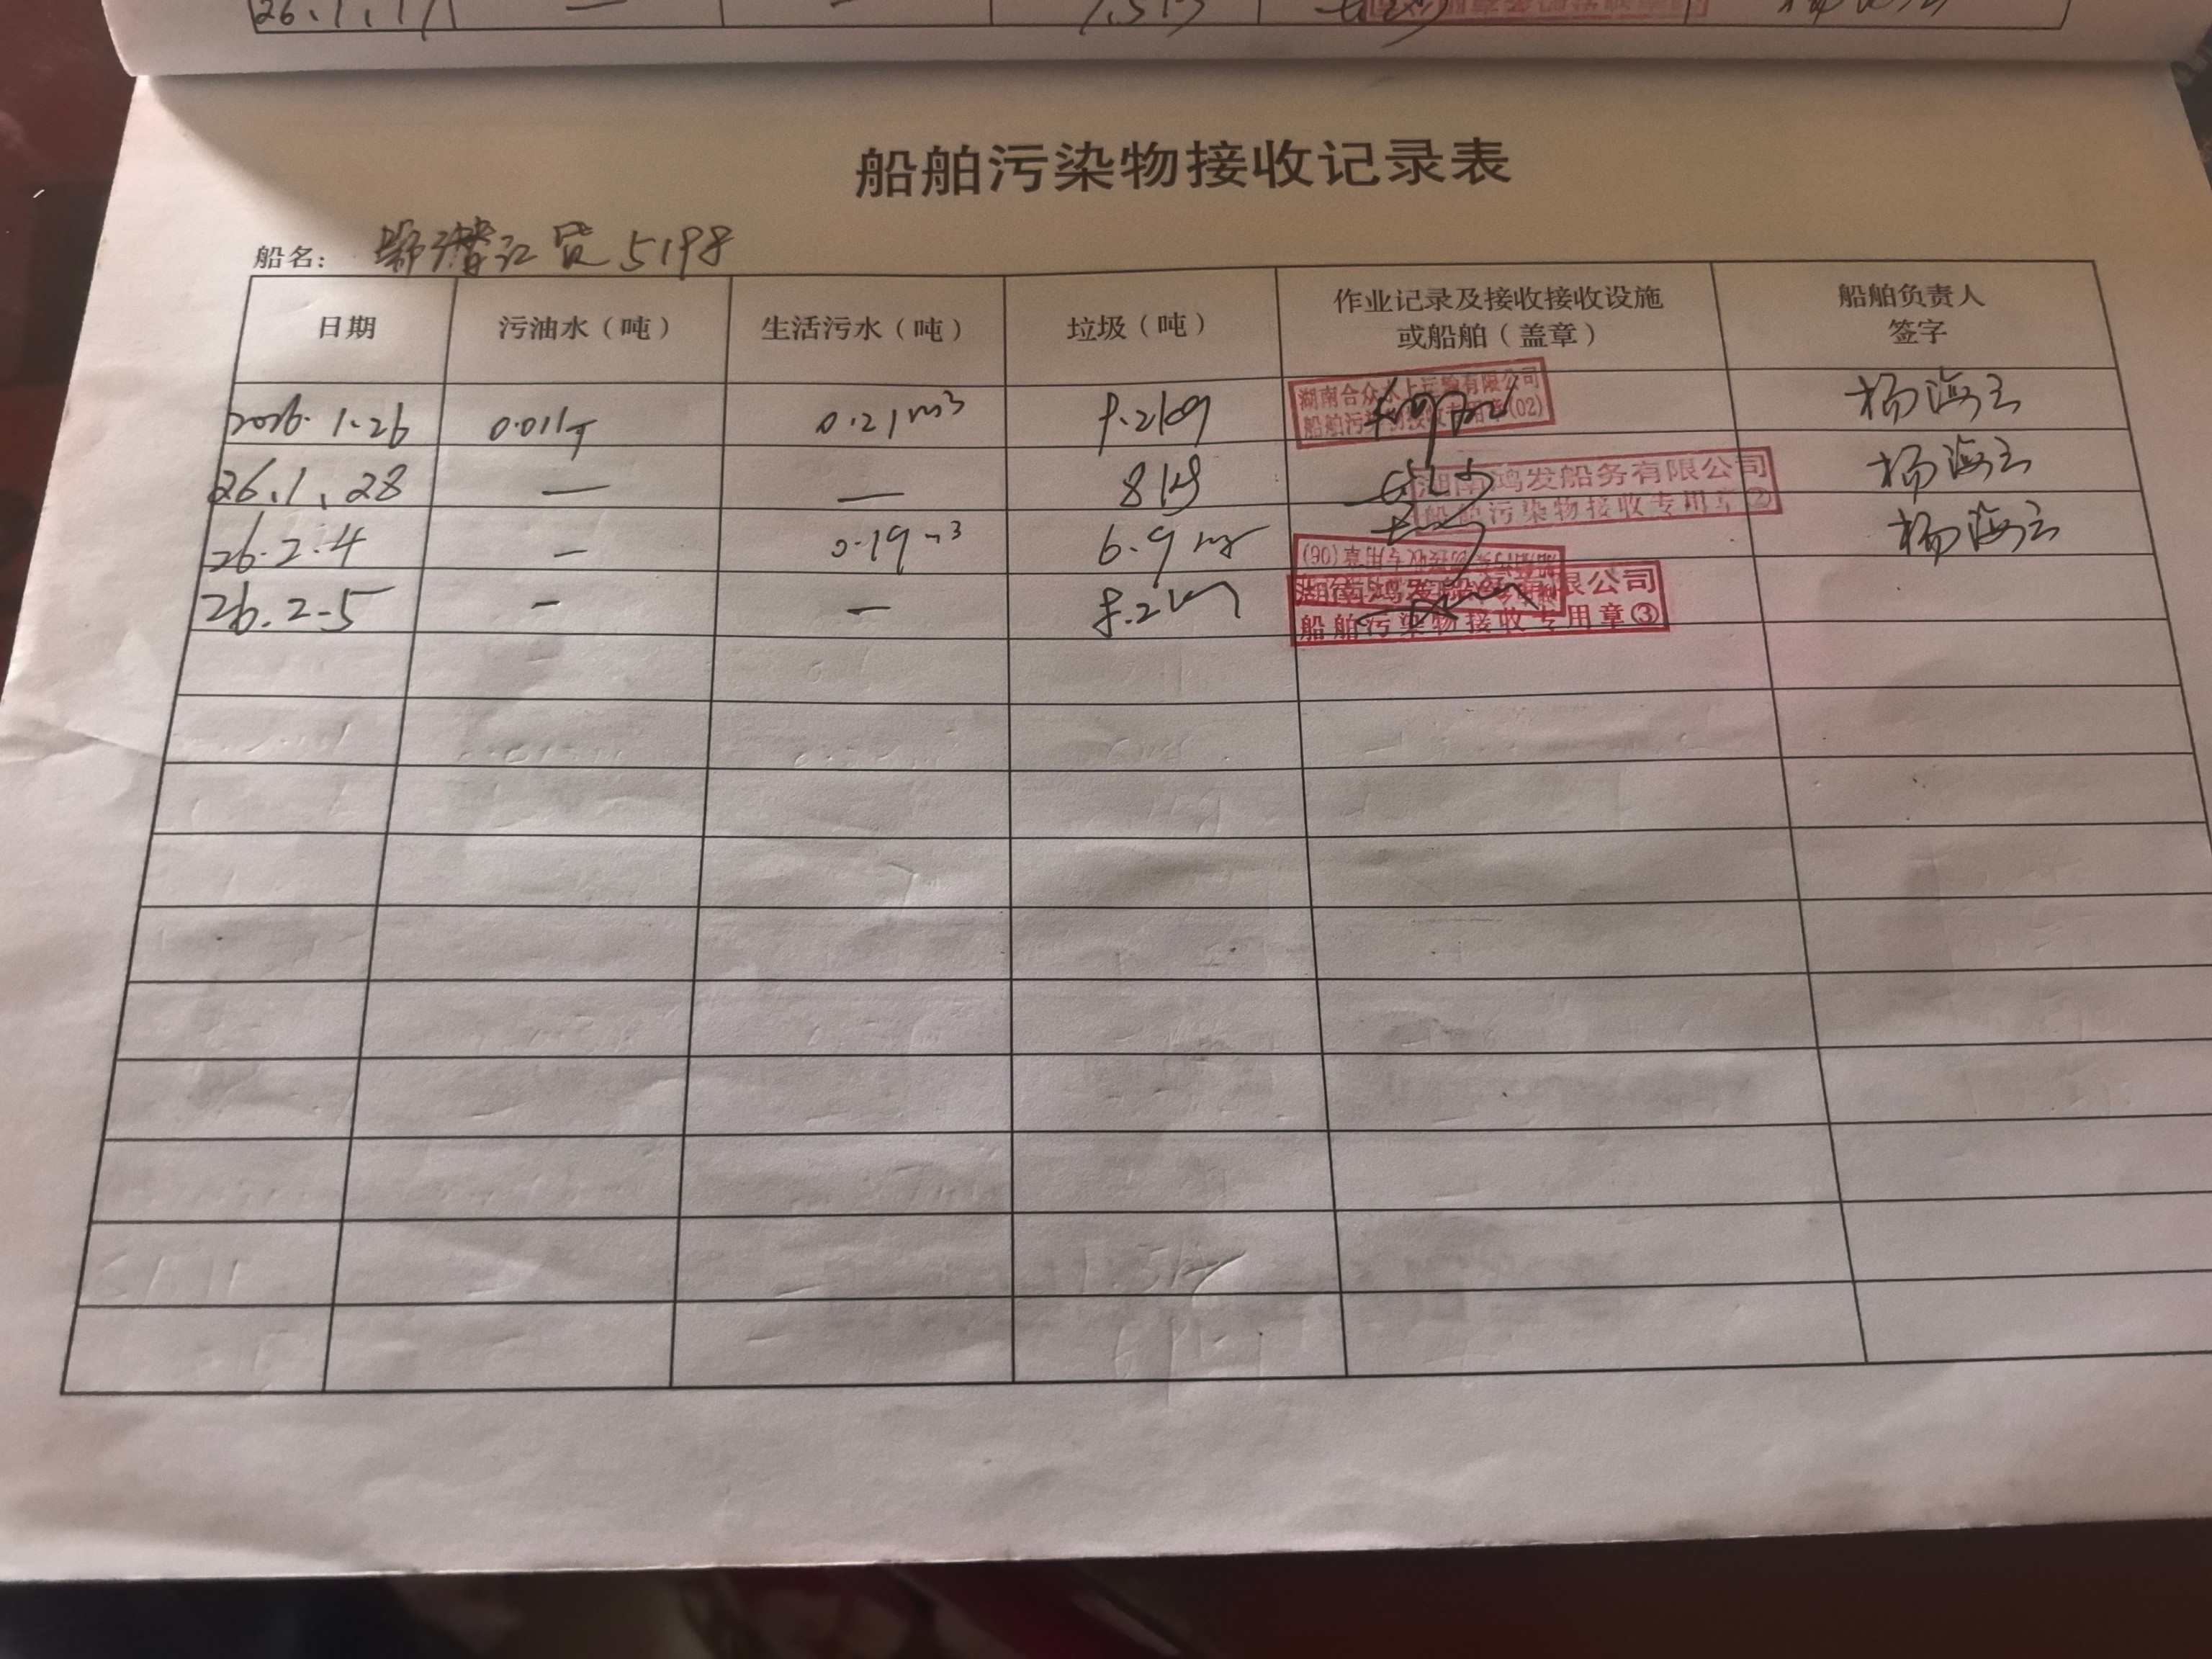 26.1.17 — —
船舶污染物接收记录表
船名: 鄂潜江货5198
日期 污油水（吨） 生活污水（吨） 垃圾（吨） 作业记录及接收接收设施 或船舶（盖章） 船舶负责人 签字
2026.1.26 0.011T 0.21m³ 9.2kg 湖南合众水上运输有限公司 船舶污染物接收专用章(02) 杨海云
26.1.28 — — 8kg 湖南鸿发船务有限公司 船舶污染物接收专用章② 杨海云
26.2.4 — 0.19m³ 6.9kg 接收专用章(06) 杨海云
26.2.5 — — 8.2kg 湖南鸿发船务有限公司 船舶污染物接收专用章③